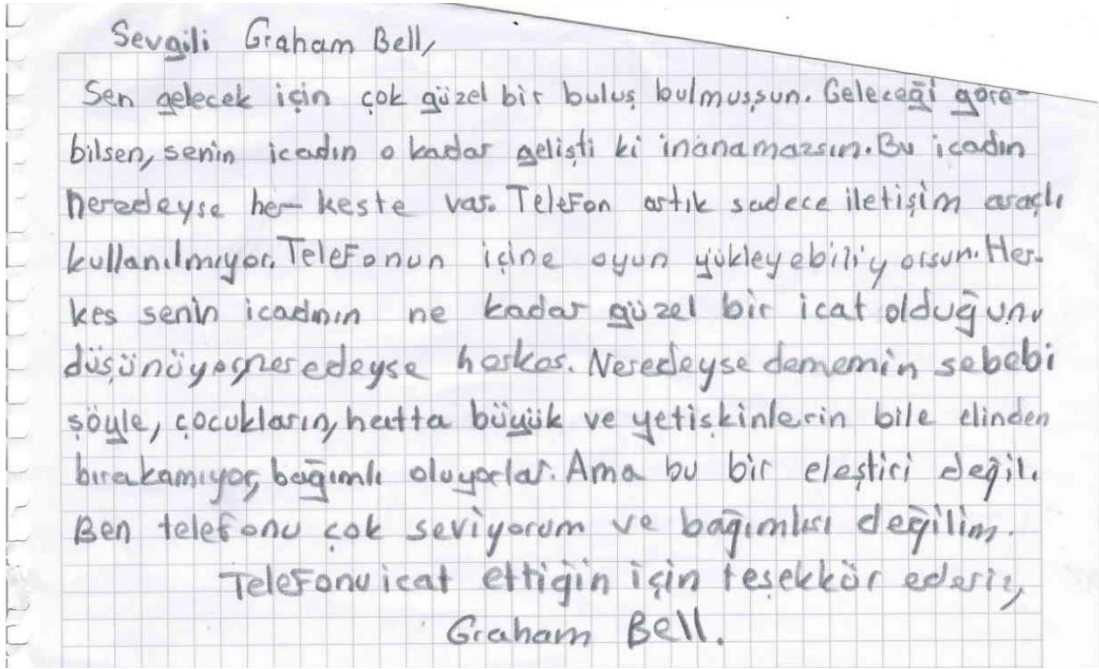 Sevgili Graham Bell,
Sen gelecek için çok güzel bir buluş bulmuşsun. Geleceği göre-
bilsen, senin icadın o kadar gelişti ki inanamazsın. Bu icadın
neredeyse her keste var. Telefon artık sadece iletişim araçlı
kullanılmıyor. Telefonun içine oyun yükleyebiliyorsun. Her-
kes senin icadının ne kadar güzel bir icat olduğunu
düşünüyor, neredeyse herkes. Neredeyse dememin sebebi
şöyle, çocukların, hatta büyük ve yetişkinlerin bile elinden
bırakamıyor, bağımlı oluyorlar. Ama bu bir eleştiri değil.
Ben telefonu çok seviyorum ve bağımlısı değilim.
Telefonu icat ettiğin için teşekkür ederiz,
Graham Bell.